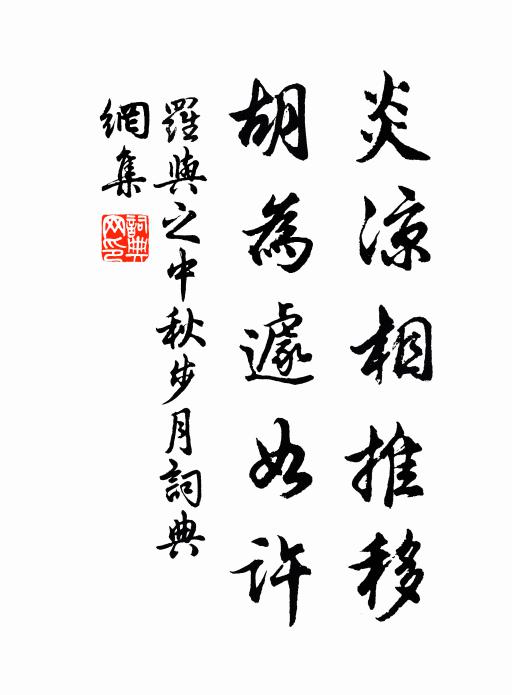 炎涼相推移
胡為遽如許
羅與之中秋步月詞典
網集
詞典網印